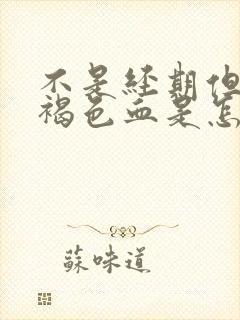 不是经期但
褐色血是怎
蘇味道